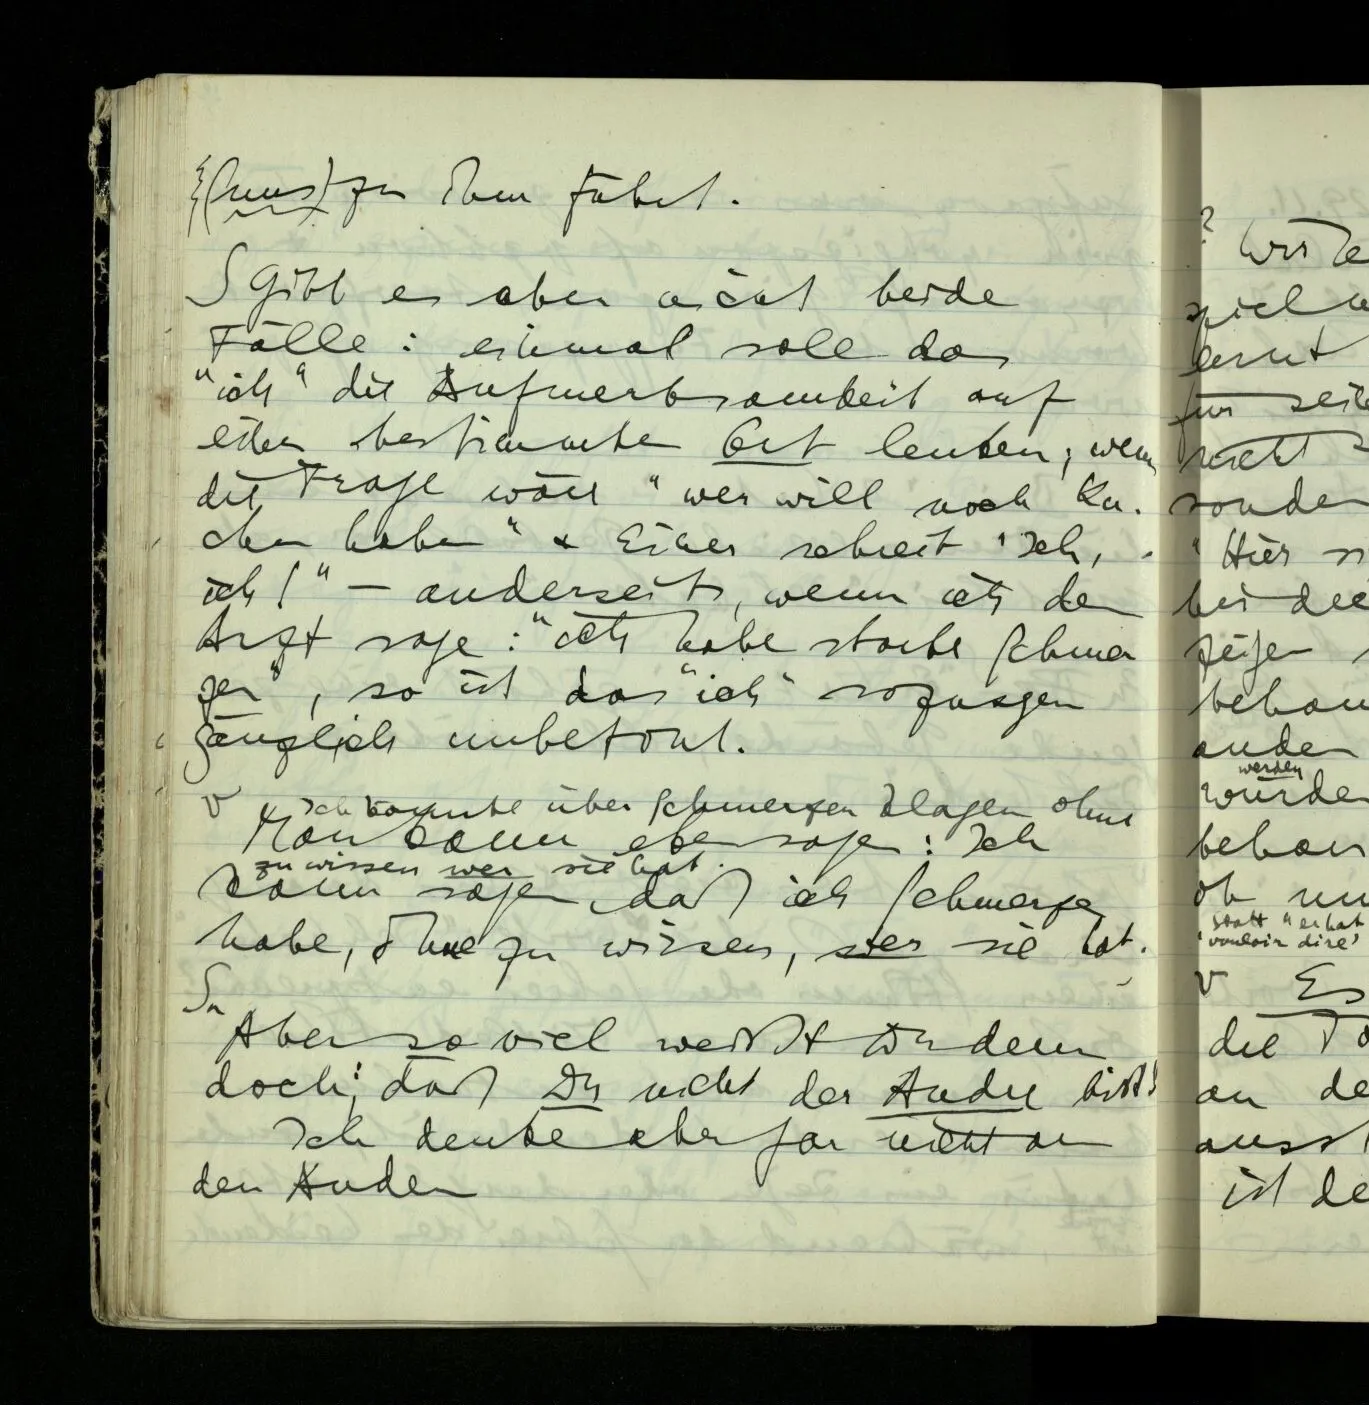 (uns) zu ihm führt.
S Gibt es aber nicht beide
Fälle: einmal soll das
"ich" die Aufmerksamkeit auf
einen bestimmten Ort lenken, wenn
die Frage wäre "wer will noch Ku-
chen haben" & Einer schreit "Ich,
ich!" – anderseits, wenn ich dem
Arzt sage: "ich habe starke Schmer
zen", so ist das "ich" sozusagen
gänzlich unbetont.
V Ich konnte über Schmerzen klagen ohne
Man kann eben sagen: Ich
zu wissen wer sie hat.
kann sagen, daß ich Schmerzen
habe, ohne zu wissen, wer sie hat.
Sn
Aber so viel weißt Du denn
doch; daß Du nicht der Andre bist!
Ich denke aber gar nicht an
den Andern
? Wir
spiel
lernt
für
nicht
sondern
"Hier
bei
zeigen
behau
ander
werden
wurde
behau
ob
statt "er hat
'vouloir dire'
V Es
die
an de
auss
ist de